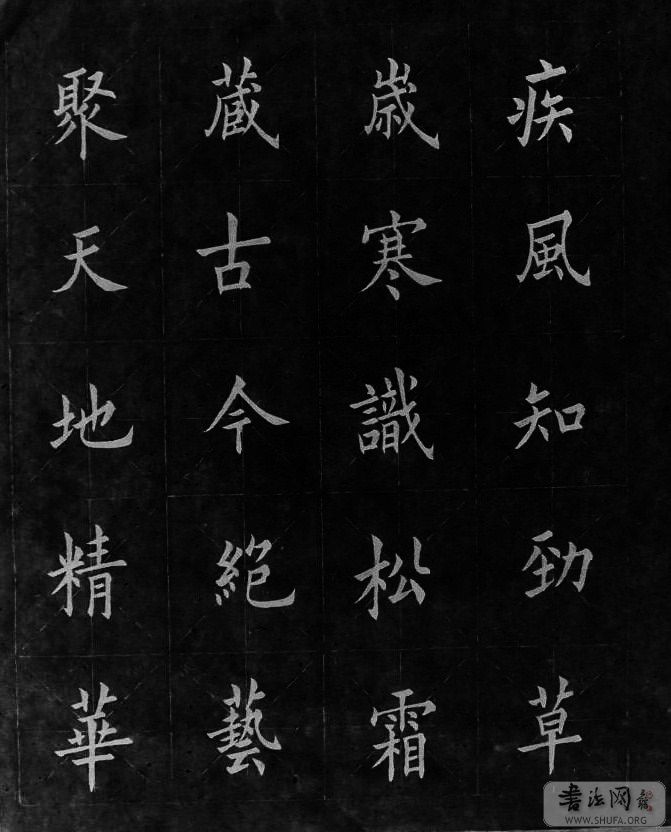 疾風知勁草
歲寒識松霜
藏古今絕藝
聚天地精華
書法网
WWW.SHUFA.ORG